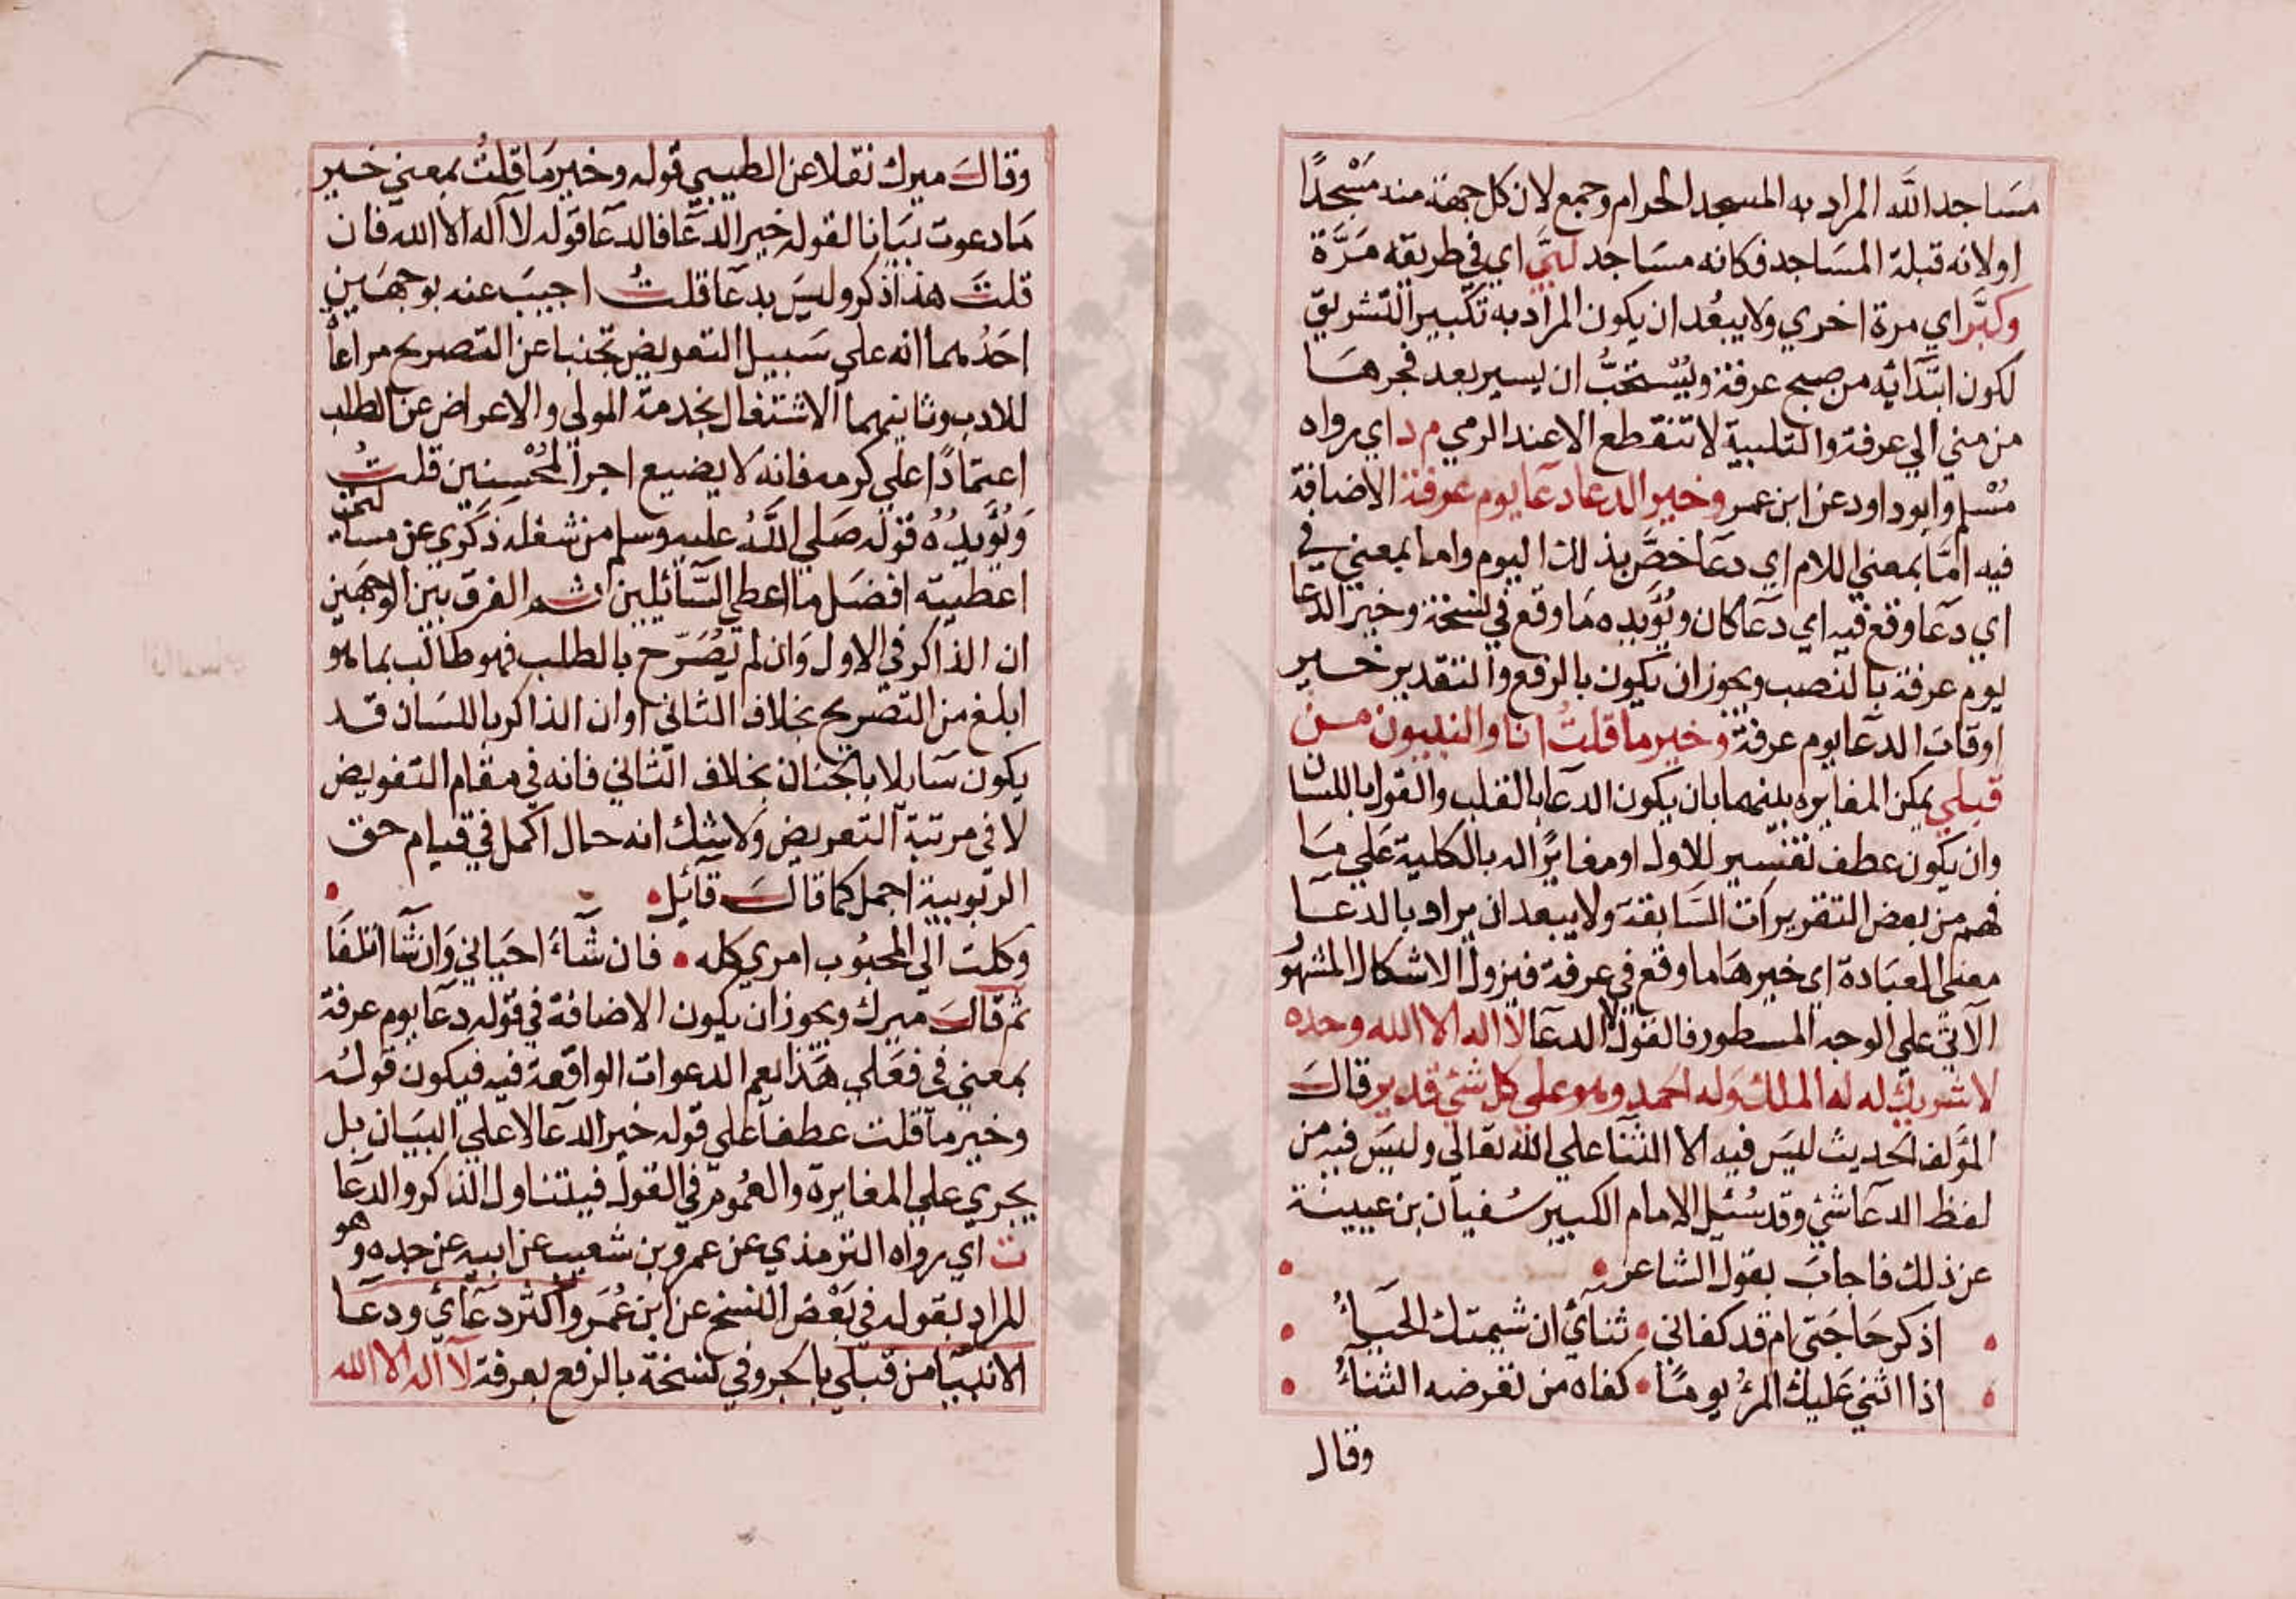 مسَاجد اللَّه المراد به المسجد الحرام وجمع لان كل جهة منه مَسْجدًا
او لانه قبلة المسَاجد فكانه مسَاجد لبَّي اي في طريقه مَرَّة
وكبَّر اي مرة اخري ولا يبعُد ان يكون المراد به تكبير التشريق
لكون ابتدائه من صبح عرفة ويُسْتحَبُّ ان يسير بعد فجرهَا
من مني الي عرفة والتلبية لا تنقطع الا عند الرمي م د اي رواه
مُسْلم وابو داود عن ابن عمر وخير الدعا دعَا يوم عرفة الاضافة
فيه امَّا بمعني اللام اي دعَا خصَّ بذلك اليوم واما بمعني في
اي دعَا وقع فيه اي دعَا كان ويُؤيده مَا وقع في نسخة وخير الدعا
يوم عرفة بالنصب ويجوز ان يكون بالرفع والتقدير خير
اوقات الدعَا يوم عرفة وخير ما قلتُ انا والنبيون من
قبلي يمكن المغايره بينهما بان يكون الدعا بالقلب والقول باللسان
وان يكون عطف تفسير للاول او مغايرًا له بالكلية عَلي مَا
فهم من بعض التقريرات السَابقة ولا يبعد ان يراد بالدعَا
معني العبَادة اي خيرهَا ما وقع في عرفة فيزول الاشكال المشهُو
الآتي علي الوجه المسطور فالقول الدعَا لا اله الا الله وحده
لا شريك له له الملك وَله الحمد وهو علي كل شئ قدير قالَ
المؤلف الحديث ليسَ فيه الا الثنا علي الله تعالي وليسَ فيه من
لفظ الدعَا شئ وقد سُئل الامام الكبير سُفيان بن عيينة
عن ذلك فاجابَ بقول الشاعر
اذكر حَاجَتي ام قد كفاني • ثنائي ان شيمتك الحيَاءُ
اذا اثني عَليك المرُ يومًا • كفاه من تعرضه الثناءُ
وقال
وقالَ ميرك نقلا عن الطيبي قوله وخير مَا قلتُ بمعني خير
مَا دعوت بيَانا لقوله خير الدعَا فالدعَا قوله لا اله الا الله فان
قلتَ هذا ذكر وليسَ بدعَا قلتُ اجيبَ عنه بوجهَين
احَدُهما انه علي سَبيل التعريض تجنبا عن التصريح مراعاً
للادب وثانيهما الاشتغال بخدمة المولي والاعراض عن الطلب
اعتمَادًا علي كرمه فانه لا يضيع اجر المُحْسنين قلتُ
وَيُؤيدُهُ قوله صَلي اللَّهُ عليه وسلم من شغله ذكري عن مسألتي
اعطيته افضَل ما اعطي السَّائلين ثم الفرق بين الوجهَين
ان الذاكر في الاول وَان لم يُصَرّح بالطلب فهو طالب بما هو
ابلغ من التصريح بخلاف الثاني او ان الذاكر باللسَان قد
يكون سَايلا بالجنان بخلاف الثاني فانه في مقام التفويض
لا في مرتبة التعريض ولا شك انه حال اكمل في قيام حق
الربوبية اجمل كما قالَ قآئل
وكلت الي المحبُوب امري كله • فان شَآءَ احيَاني وَان شَا اتلفَا
ثم قالَ ميرك ويجوز ان يكون الاضافة في قوله دعَا يوم عرفة
بمعني في فعَلي هَذا يعم الدعوات الواقعة فيه فيكون قوله
وخير ما قلت عطفا علي قوله خير الدعَا لا علي البيَان بل
يجري علي المغايرة والعمُوم في القول فيتناول الذكر والدعَا
ت اي رواه الترمذي عن عمرو بن شعيب عن ابيه عن جده وهو
المراد بقوله في بَعْض النسخ عن ابن عُمَر واكثر دعَائي ودعَا
الانبيَا من قبلي بالجر وفي نسخة بالرفع بعرفة لا اله الا الله